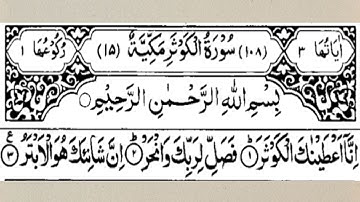 اٰيَاتُهَا ٣ (١٠٨) سُوْرَةُ الْكَوْثَرِ مَكِّيَّةٌ (١٥) رُكُوْعُهَا ١
بِسْمِ اللّٰهِ الرَّحْمٰنِ الرَّحِيْمِ ○
اِنَّاۤ اَعْطَيْنٰكَ الْكَوْثَرَ ؕ﴿١﴾ فَصَلِّ لِرَبِّكَ وَانْحَرْ ؕ﴿٢﴾ اِنَّ شَانِئَكَ هُوَ الْاَبْتَرُ ﴿٣﴾ ع